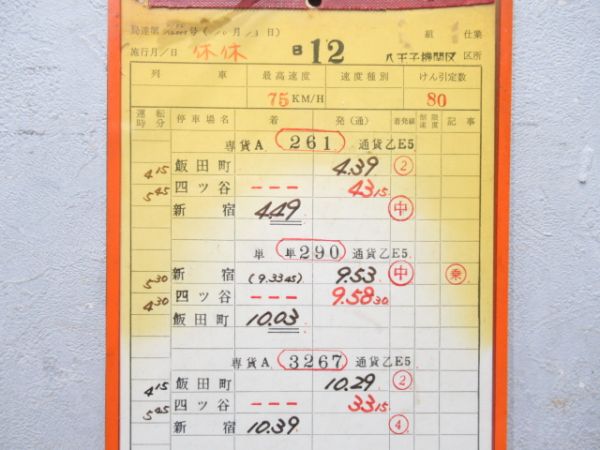 局達第 号( 10月 13日) 組 仕業
施行月/日 休休 B12 八王子機関区 区所
列 車 最高速度 速度種別 けん引定数
75KM/H 80
運転時分 停車場名 着 発(通) 着発線 制限速度 記事
専貨A 261 通貨乙E5
飯田町 4.39 ②
4 15
四ツ谷 --- 43 15
5 45
新宿 4.49 中
単 単290 通貨乙E5
新宿 (9.33 45) 9.53 中 乗
5 30
四ツ谷 --- 9.58 30
4 30
飯田町 10.03
専貨A 3267 通貨乙E5
飯田町 10.29 ②
4 15
四ツ谷 --- 33 15
5 45
新宿 10.39 ④